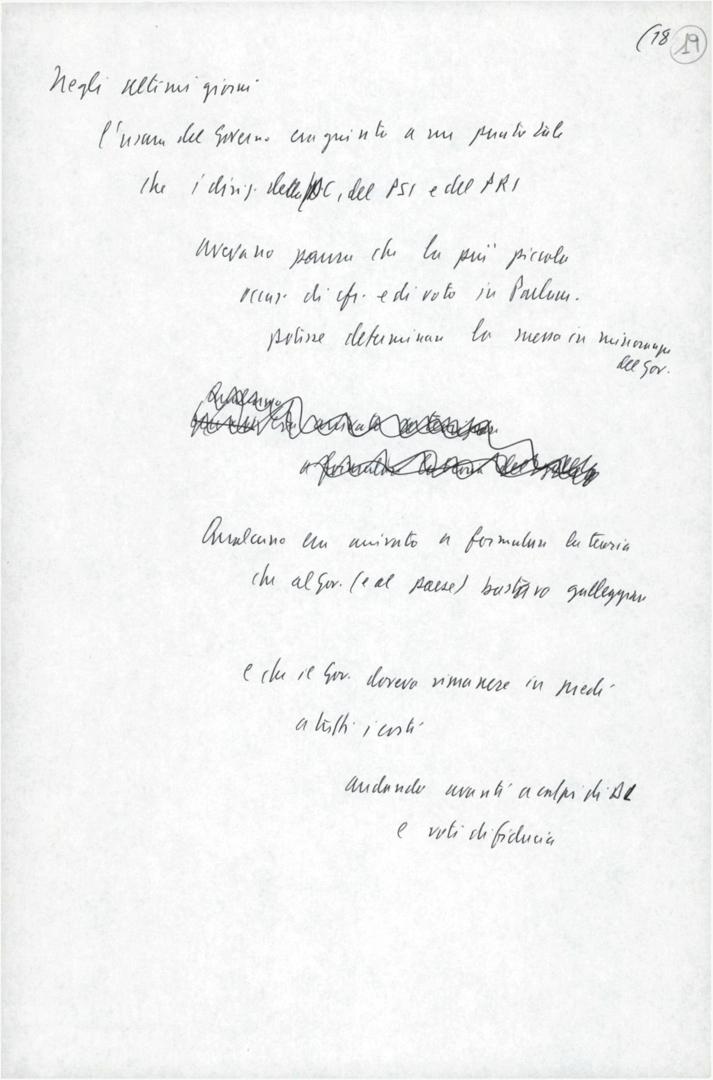 (18 19
Negli ultimi giorni
l'usura del Governo era giunta a un punto tale
che i dirig. della DC, del PSI e del PRI
avevano paura che la più piccola
occas. di cfr. e di voto in Parlam.
potesse determinare la messa in minoranza
del Gov.
Qualcuno
era arrivato
a formulare la teoria
Qualcuno era arrivato a formulare la teoria
che al Gov. (e al paese) bastava galleggiare
e che il Gov. doveva rimanere in piedi
a tutti i costi
andando avanti a colpi di DL
e voti di fiducia